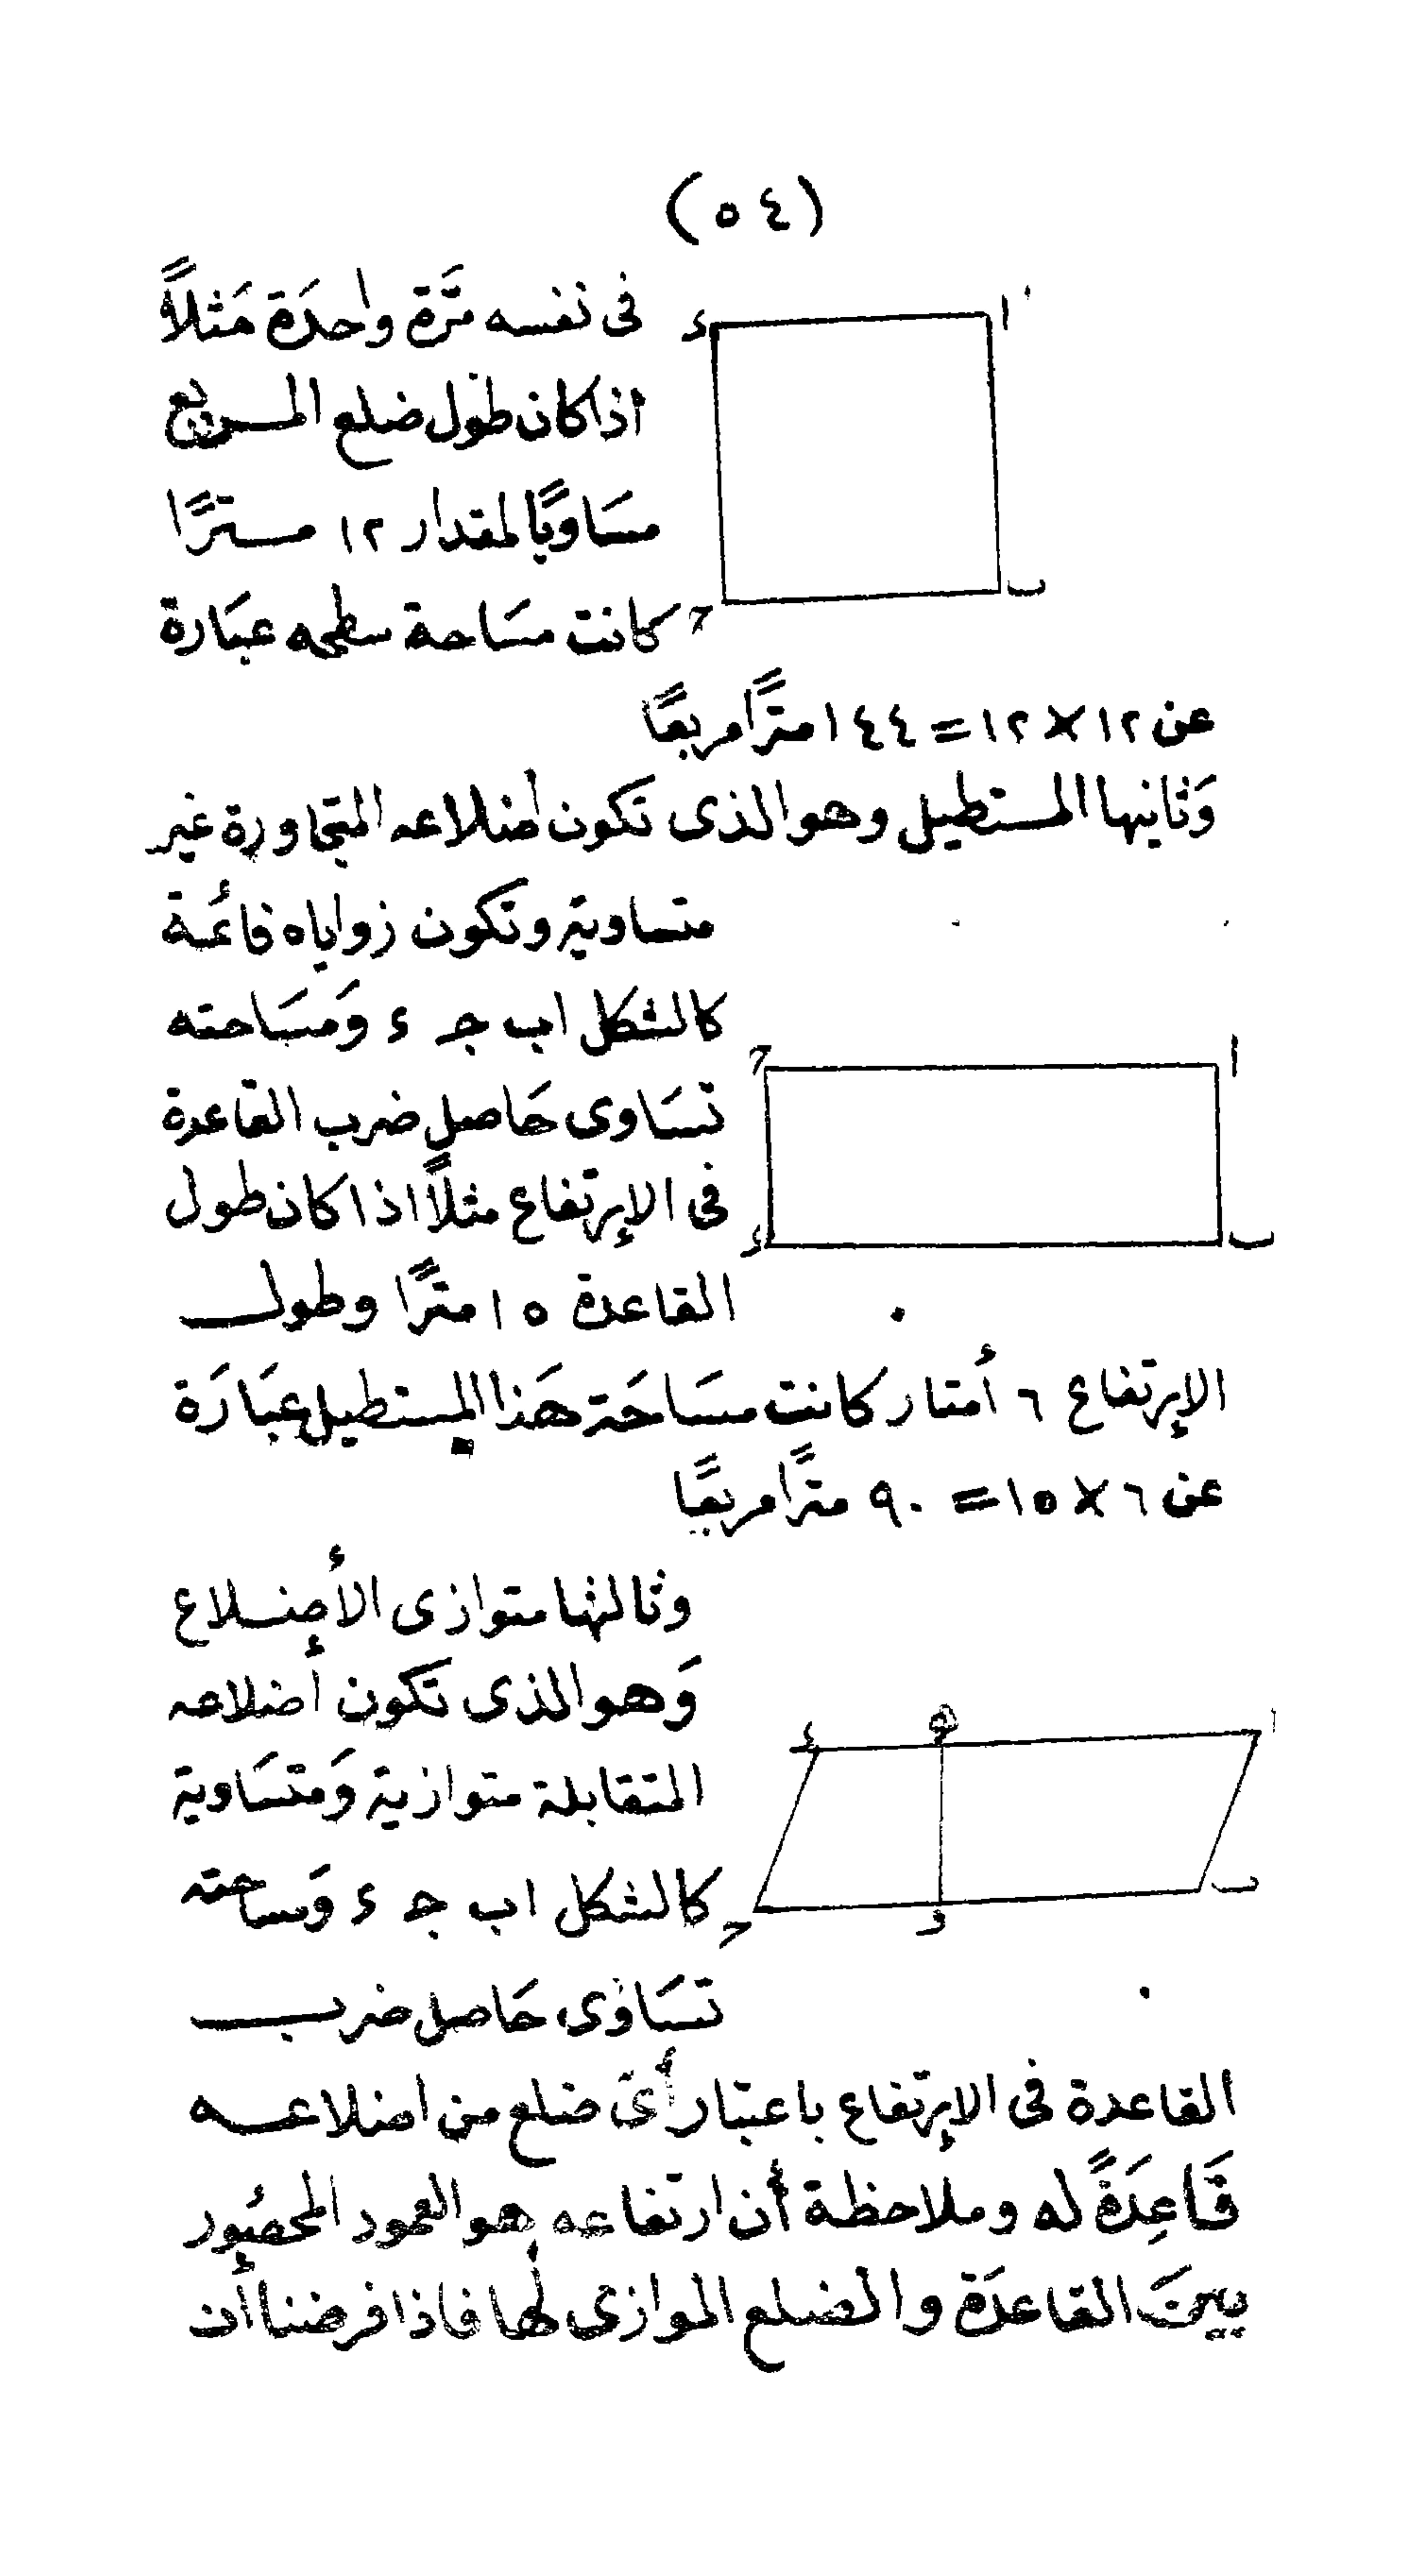 (٥٤)
فى نفسه مَرَّة واحدَة مَثلاً
اذا كان طول ضلع المـربع
مسَاويًا لمقدار ١٢ مـترًا
كانت مسَاحة سطحه عبَارة
عن ١٢ × ١٢ = ١٤٤ مترًا مربعًا
وَثانيها المستطيل وهو الذى تكون اضلاعه المتجاورة غير
متساوية وتكون زواياه قائمة
كالشكل اب جـ ء وَمسَاحته
تسَاوى حَاصل ضرب القاعدة
فى الإرتفاع مثلاً اذا كان طول
القاعدة ١٥ مترًا وطول
الإرتفاع ٦ أمتار كانت مسَاحَة هَذا المستطيل عبَارَة
عن ٦ × ١٥ = ٩٠ مترًا مربعًا
وثالثها متوازى الأضلاع
وَهو الذى تكون أضلاعه
المتقابلة متوازية وَمتسَاوية
كالشكل اب جـ ء وَمساحته
تسَاوى حَاصل ضرب
القاعدة فى الإرتفاع باعتبار أىّ ضلع من اضلاعه
قَاعِدَةً له وملاحظة أن ارتفاعه هو العمود المحصُور
بينَ القاعدَة والضلع الموازى لها فاذا فرضنا أن
ا
ء
ب
ح
ا
ح
ب
ء
ا
ه
ء
ب
و
ح